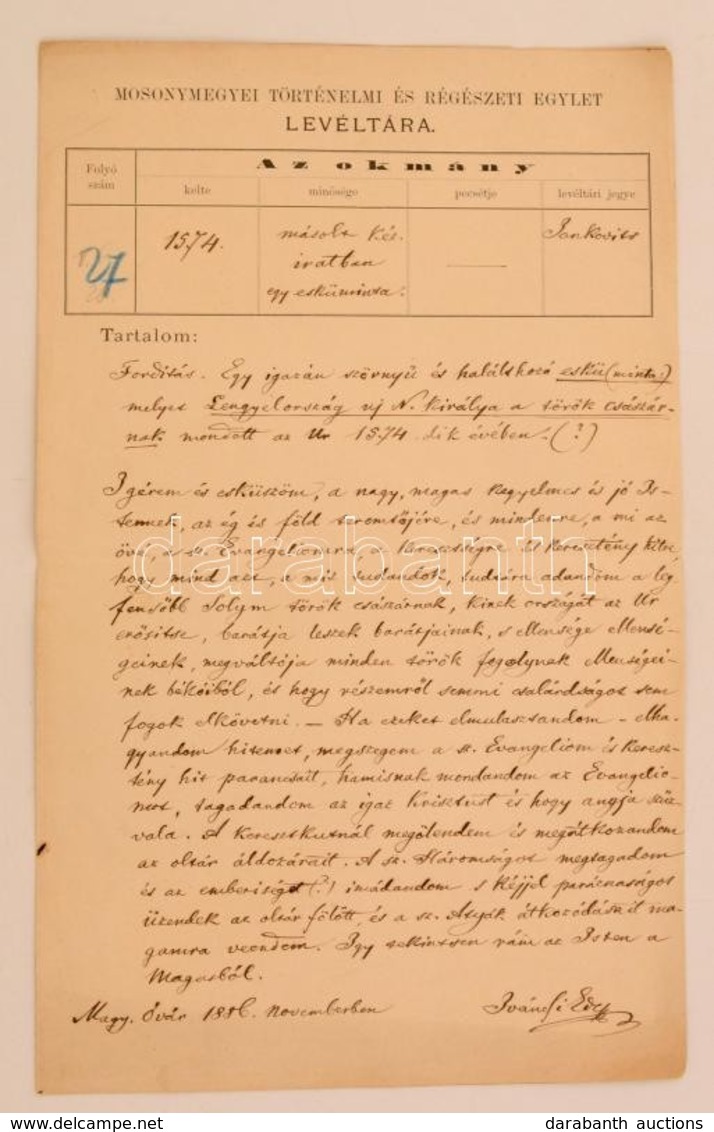 MOSONYMEGYEI TÖRTÉNELMI ÉS RÉGÉSZETI EGYLET
LEVÉLTÁRA.
Folyó szám
Az okmány
kelte
minősége
pecsétje
levéltári jegye
27
1574.
másolt kéz.
iratban
egy esküminta.
Jankovits
Tartalom:
Fordítás. Egy igazán szörnyű és halálthozó eskü (minta?)
melyet Lengyelország új N. királya a török császár-
nak mondott az Úr 1574 dik évében. (?)
Igérem és esküszöm, a nagy, magas kegyelmes és jó Is-
tennek, az ég és föld teremtőjére, és mindenre, a mi az
övé, a sz. Evangeliomra, a keresztségre és keresztény hitre,
hogy mind azt, a mit tudandok, tudtára adandom a leg
felsőbb Solym török császárnak, kinek országát az Ur
erősítse, barátja leszek barátjainak, s ellensége ellensé-
geinek, megváltója minden török fogolynak ellenségei-
nek békóiból, és hogy részemről semmi csalárdságot sem
fogok elkövetni. — Ha ezeket elmulasztandom – elha-
gyandom hitemet, megszegem a sz. Evangeliom és keresz-
tény hit parancsait, hamisnak mondandom az Evangelio-
mot, tagadandom az igaz Krisztust és hogy anyja szűz
vala. A keresztkutnál megölendem és megátkozandom
az oltár áldozárait. A sz. Háromságot megtagadom
és az emberiséget (?) imádandom s kéjjel paráznaságot
űzendek az oltár fölött, és a sz. Atyák átkozódásait ma-
gamra veendem. Igy tekintsen rám az Isten a
Magasból.
Magy. Óvár 1886. novemberben
Ivánfi Ede
darabanth
© www.darabanth.com
darabanth auctions